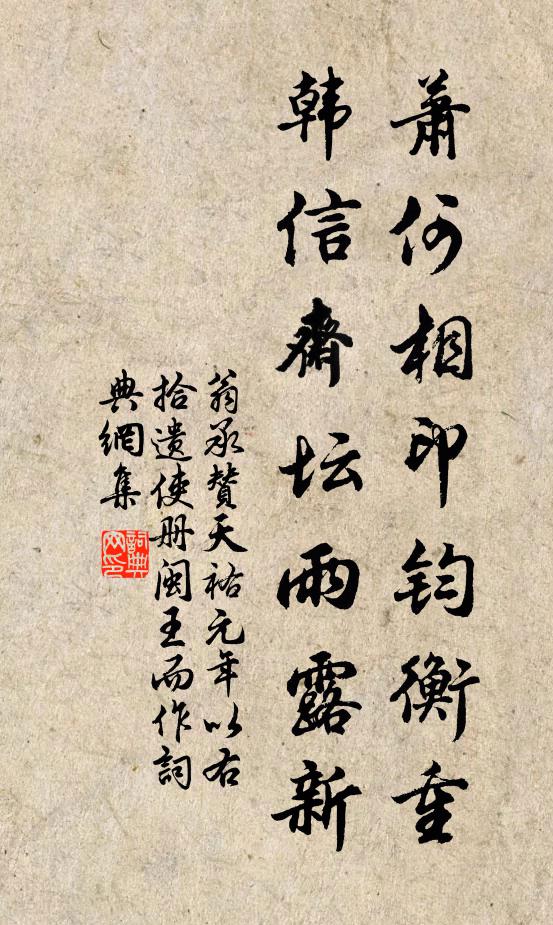 萧何相印钧衡重
韩信齋坛雨露新
翁承赞天祐元年以右
拾遗使册闽王而作詞
典網集
詞典网印